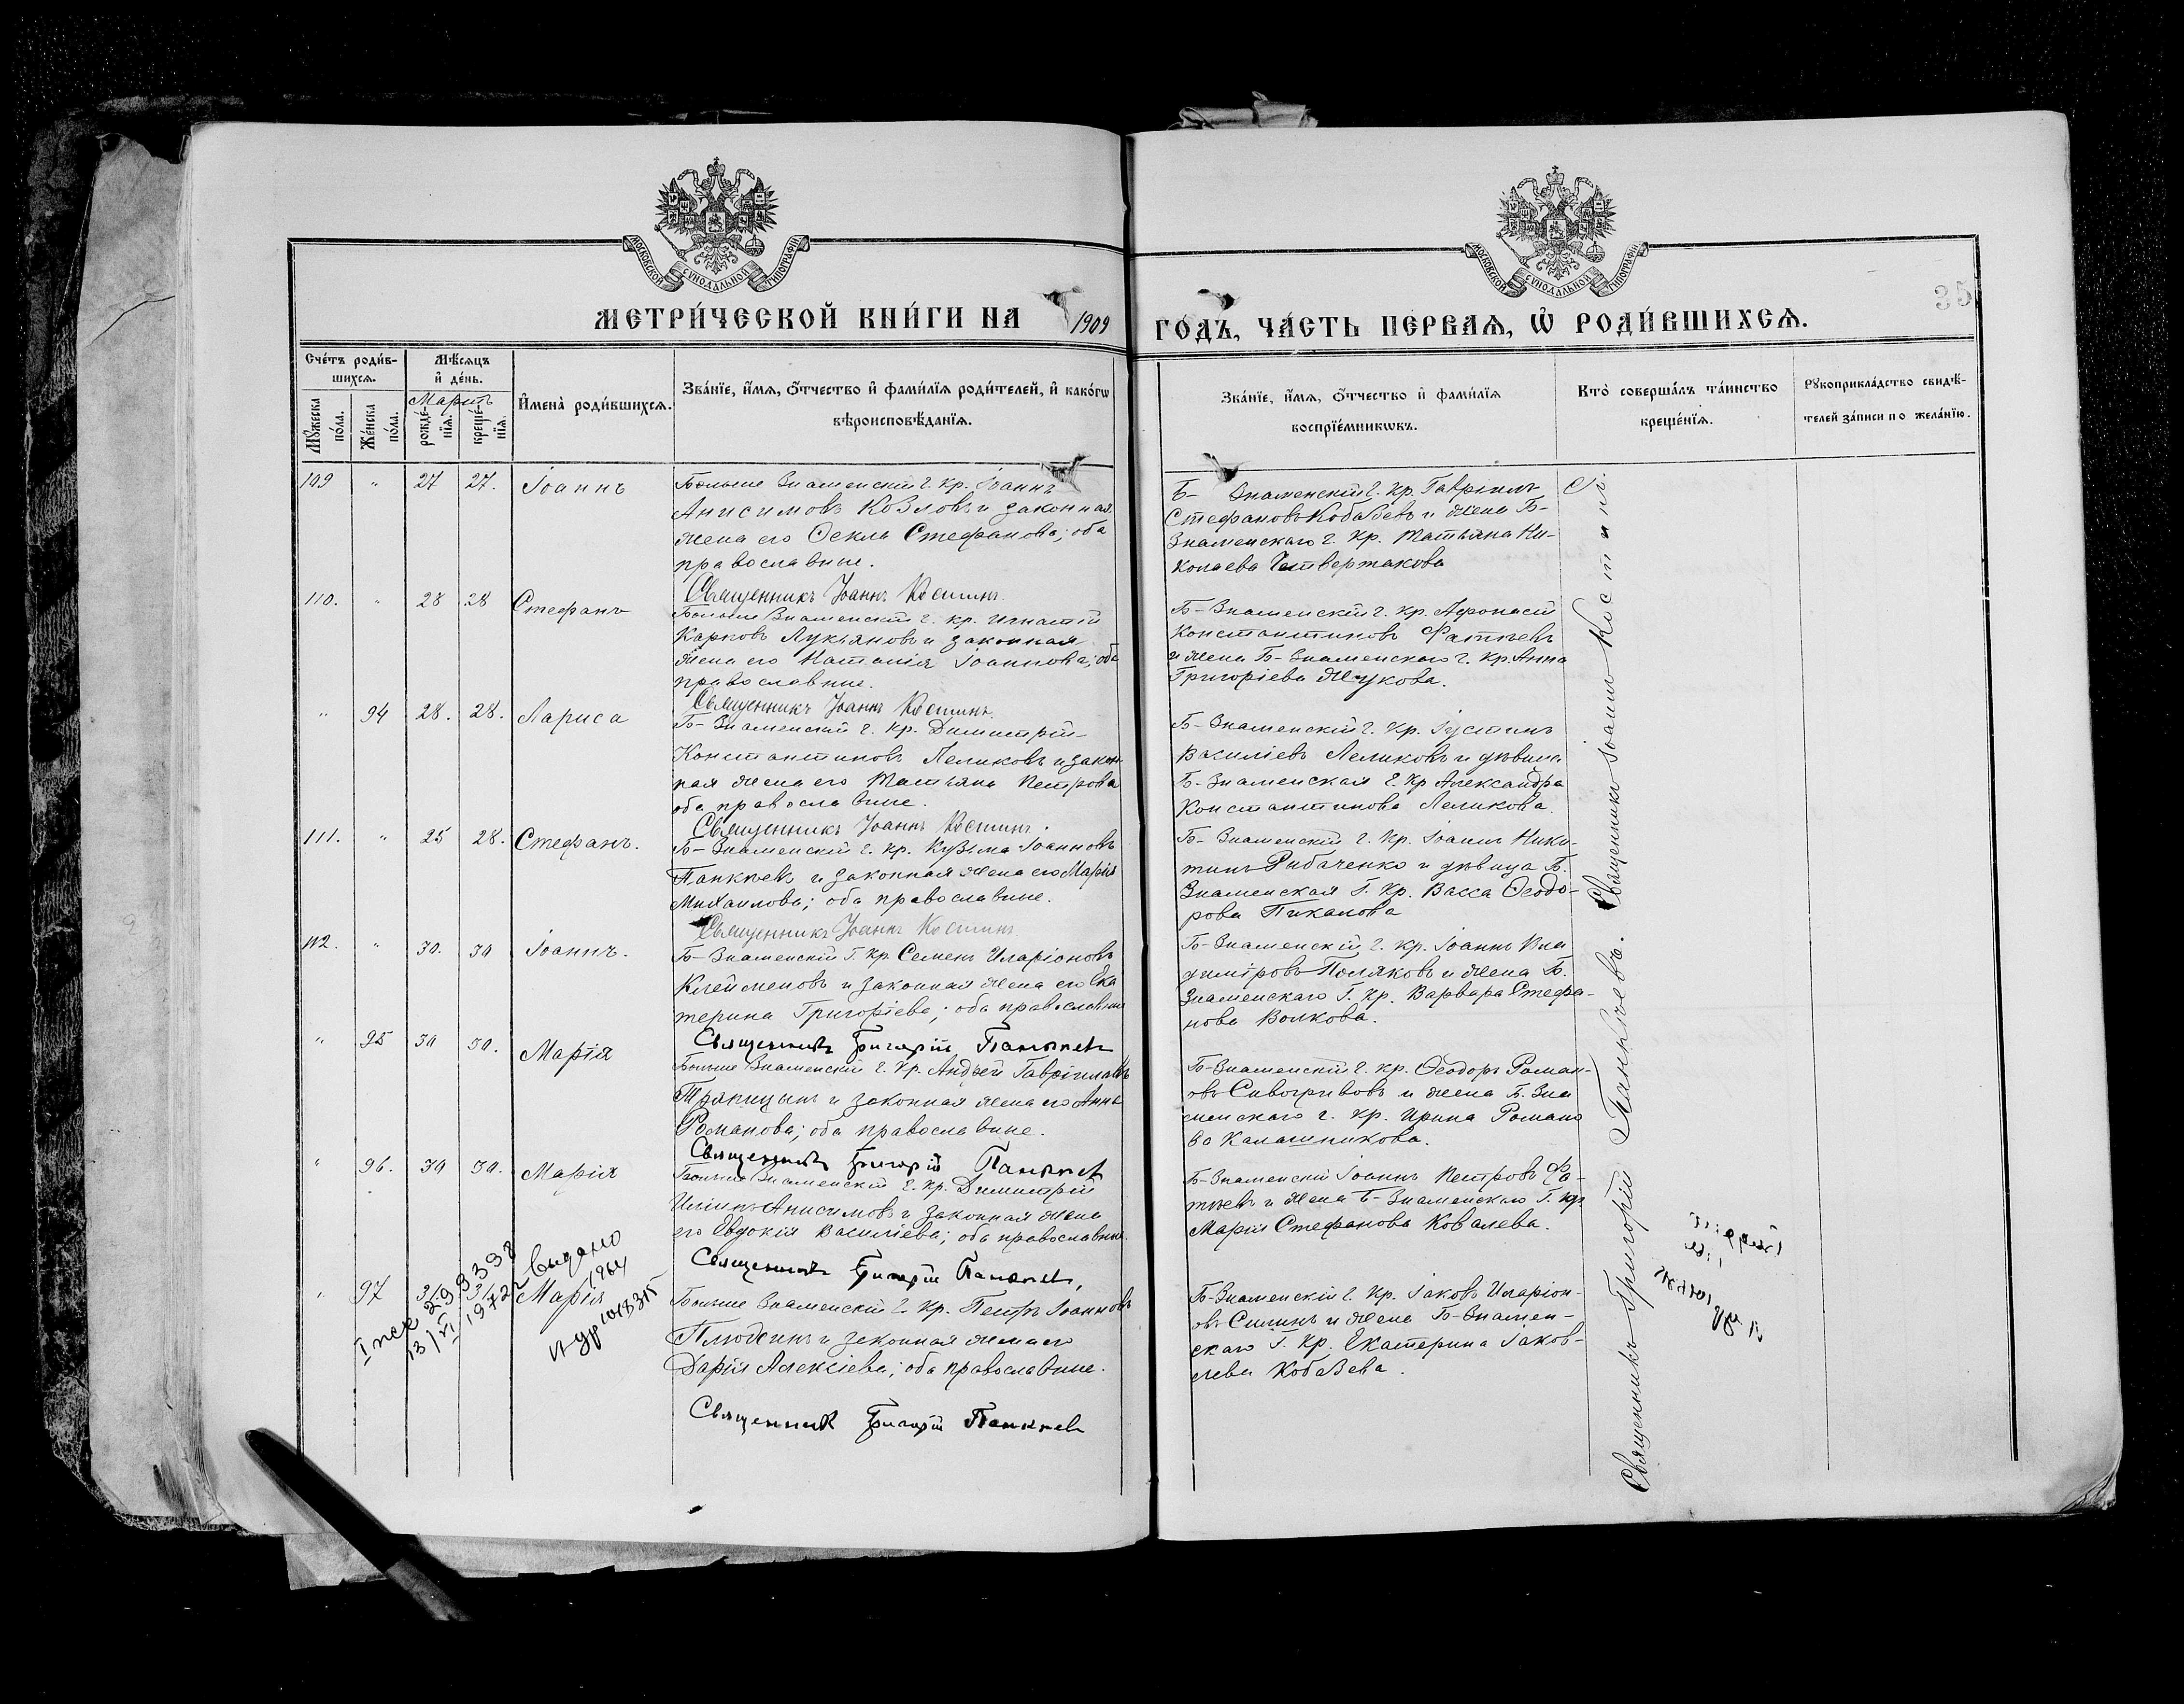 МОСКОВСКОЙ СѴНОДАЛЬНОЙ ТИПОГРАФІИ
МОСКОВСКОЙ СѴНОДАЛЬНОЙ ТИПОГРАФІИ
35
МЕТРИ́ЧЕСКОЙ КНИ́ГИ НА 1909 ГО́ДЪ, ЧА́СТЬ ПЕ́РВАѦ, Ѽ РОДИ́ВШИХСѦ.
Сче́тъ роди́в-
шихсѧ.
Мꙋ́жеска по́ла.
Же́нска по́ла.
Мѣ́сѧцъ
и҆ де́нь.
Мартъ
рожде́-нїѧ.
креще́-нїѧ.
И҆мена̀ роди́вшихсѧ.
Зва́нїе, и҆́мѧ, ѻ҆́тчество и҆ фами́лїѧ роди́телей, и҆ како́гѡ
вѣроисповѣ́данїѧ.
Зва́нїе, и҆́мѧ, ѻ҆́тчество и҆ фами́лїѧ
воспрїе́мникѡвъ.
Кто̀ соверша́лъ та́инство
креще́нїѧ.
Рꙋкоприкла́дство свидѣ́-
телей за́писи по жела́нїю.
109 " 27 27. Іоаннъ
Больше Знаменскій г. кр. Іоаннъ
Анисимовъ Козловъ и законная
жена его Ѳекла Стефанова; оба
православные.
Священникъ Іоаннъ Костинъ.
Б- Знаменскій г. кр. Гавріилъ
Стефановъ Кобазевъ и жена Б-
Знаменскаго г. кр. Татьяна Ни-
колаева Четвертакова
110. " 28 28 Стефанъ
Больше Знаменскій г. кр. Игнатій
Карповъ Лукьяновъ и законная
жена его Наталія Іоаннова; оба
православные.
Священникъ Іоаннъ Костинъ.
Б-Знаменскій г. кр. Афонасій
Константиновъ Фатѣевъ
и жена Б-Знаменскаго г. кр. Анна
Григоріева Жукова.
" 94 28. 28. Лариса
Б-Знаменскій г. кр. Димитрій
Константиновъ Леликовъ и закон-
ная жена его Татьяна Петрова
оба православные.
Священникъ Іоаннъ Костинъ.
Б-Знаменскій г. кр. Іустинъ
Василіевъ Леликовъ и дѣвица
Б-Знаменская г. кр Александра
Константинова Леликова.
111. " 25 28. Стефанъ.
Б-Знаменскій г. кр. Кузьма Іоанновъ
Панкѣевъ и законная жена его Марія
Михаилова; оба православные.
Священникъ Іоаннъ Костинъ
Б- Знаменскій г. кр. Іоаннъ Ники-
тинъ Рибаченко и дѣвица Б.
Знаменская Г. Кр. Васса Ѳеодо-
рова Пиканова
112. " 30. 30 Іоаннъ.
Б-Знаменскій Г. Кр Семенъ Иларіоновъ
Клейменовъ и законная жена его Ека
терина Григоріева; оба православные
Священникъ Григорій Панкѣевъ
Б-Знаменскій г. кр. Іоаннъ Вла
диміровъ Поляковъ и жена Б.
Знаменскаго Г. Кр. Варвара Стефа-
нова Волкова.
" 95 30 30. Марія
Больше Знаменскій г. кр. Андрей Гавріиловъ
Тряпицынъ и законная жена его Анна
Романова; оба православные.
Священникъ Григорій Панкѣевъ
Б-Знаменскій г. кр. Ѳеодоръ Роман-
овъ Сивогривовъ и жена Б. Зна
менскаго г. кр. Ирина Романо
ва Калашникова.
" 96. 30 30. Марія
Больше Знаменскій г. кр. Димитрій
Иліинъ Анисимовъ и законная жена
его Евдокія Василіева; оба православные.
Священникъ Григорій Панкѣевъ,
Б-Знаменскій Іоаннъ Петровъ Фа-
тѣевъ и жена Б-Знаменскаго Г. кр.
Марія Стефанова Ковалева.
" 97 31 31 Марія
Больше Знаменскій г. кр. Петръ Іоанновъ
Плюдинъ и законная жена его
Дарія Алексіева; оба православные.
Священникъ Григорій Панкѣевъ
Б-Знаменскій г. кр. Іаковъ Иларіон-
овъ Силинъ и жена Б-Знамен-
скаго Г. Кр. Екатерина Іаков-
лева Кобазева.
13/VI 1972г
выдано
1964
Священникъ Григорій Панкѣевъ. Священникъ Іоаннъ Костинъ.